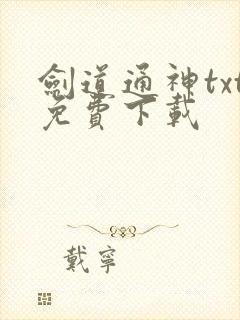 劍道通神txt
免費下載
戴寧